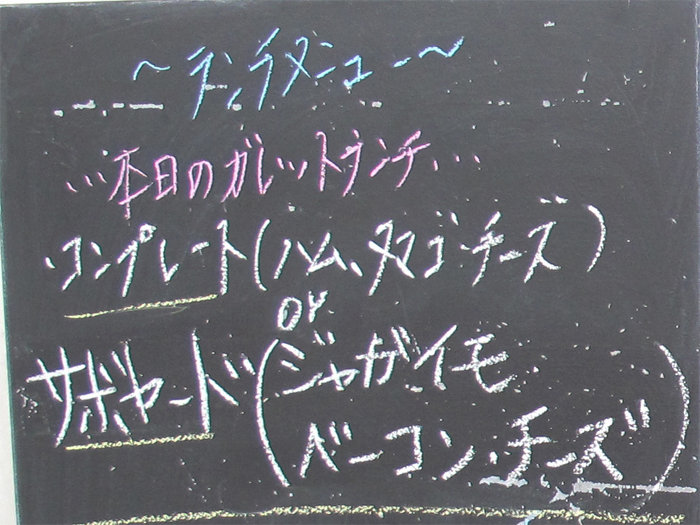 ~ランチメニュー~
…本日のガレットランチ…
・コンプレート(ハム、タマゴ・チーズ)
or
サボヤード(ジャガイモ
ベーコン・チーズ)